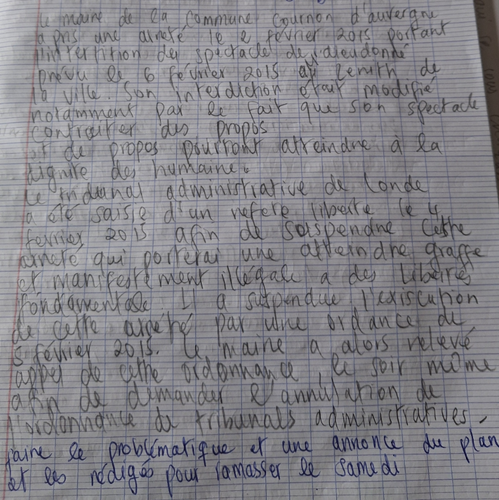 le maire de la commune Cournon d'auvergne
a pris une arreté le 2 février 2015 portant
l'interdition du spectacle de dieudonné
prévu le 6 février 2015 au zenith de
la ville. Son interdiction était modifié
notamment par le fait que son spectacle
des propos
et de propos pourront atteindre à la
dignité des humaine.
le tribunal administrative de
a été saisie d'un refere liberte le 4
février 2015 afin de suspendre cette
arreté qui porterai une atteindre graffe
et manifestement illégale a des libertés
fondamentale il a suspendue l'
de cette arrêté par une ordance de
5 février 2015. le maire a alors relevé
appel de cette ordonnance le soir même
afin de demander l'annulation de
l'ordonnance de tribunals administratives.
faire le problématique et une annonce du plan
et les rédigés pour ramasser le samedi